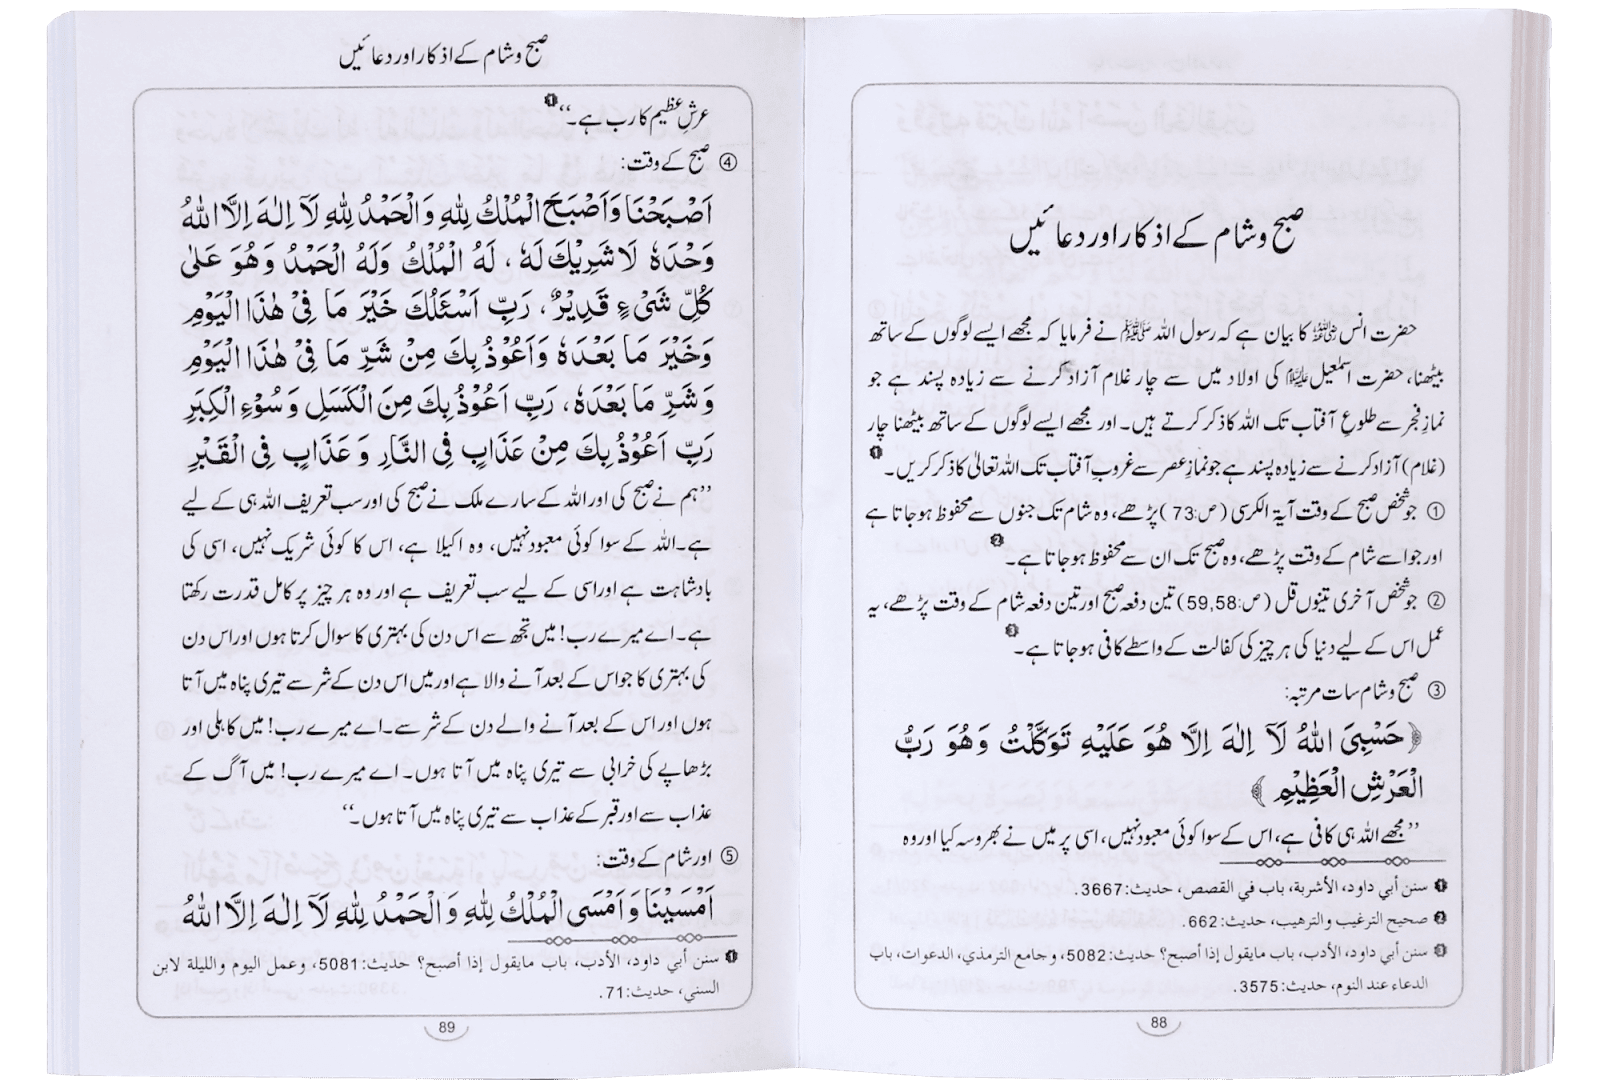 صبح و شام کے اذکار اور دعائیں
حضرت انس رضی اللہ عنہ کا بیان ہے کہ رسول اللہ ﷺ نے فرمایا کہ مجھے ایسے لوگوں کے ساتھ
بیٹھنا، حضرت اسمٰعیل علیہ السلام کی اولاد میں سے چار غلام آزاد کرنے سے زیادہ پسند ہے جو
نمازِ فجر سے طلوعِ آفتاب تک اللہ کا ذکر کرتے ہیں۔ اور مجھے ایسے لوگوں کے ساتھ بیٹھنا چار
(غلام) آزاد کرنے سے زیادہ پسند ہے جو نمازِ عصر سے غروبِ آفتاب تک اللہ تعالیٰ کا ذکر کریں۔ ❶
① جو شخص صبح کے وقت آیۃ الکرسی (ص:73) پڑھے، وہ شام تک جنوں سے محفوظ ہو جاتا ہے
اور جو اسے شام کے وقت پڑھے، وہ صبح تک ان سے محفوظ ہو جاتا ہے۔ ❷
② جو شخص آخری تینوں قل (ص:59,58) تین دفعہ صبح اور تین دفعہ شام کے وقت پڑھے، یہ
عمل اس کے لیے دنیا کی ہر چیز کی کفالت کے واسطے کافی ہو جاتا ہے۔ ❸
③ صبح و شام سات مرتبہ:
﴿حَسْبِیَ اللّٰهُ لَآ اِلٰهَ اِلَّا هُوَ عَلَیْهِ تَوَکَّلْتُ وَهُوَ رَبُّ
الْعَرْشِ الْعَظِیْمِ﴾
’’مجھے اللہ ہی کافی ہے، اس کے سوا کوئی معبود نہیں، اسی پر میں نے بھروسہ کیا اور وہ
❶ سنن أبي داود، الأشربة، باب في القصص، حدیث:3667.
❷ صحیح الترغیب والترهیب، حدیث:662.
❸ سنن أبي داود، الأدب، باب مایقول إذا أصبح؟ حدیث:5082، وجامع الترمذي، الدعوات، باب
الدعاء عند النوم، حدیث:3575.
88
صبح و شام کے اذکار اور دعائیں
عرشِ عظیم کا رب ہے۔‘‘ ❶
④ صبح کے وقت:
اَصْبَحْنَا وَاَصْبَحَ الْمُلْكُ لِلّٰهِ وَالْحَمْدُ لِلّٰهِ لَآ اِلٰهَ اِلَّا اللّٰهُ
وَحْدَهٗ لَا شَرِیْكَ لَهٗ، لَهُ الْمُلْكُ وَلَهُ الْحَمْدُ وَهُوَ عَلٰی
كُلِّ شَیْءٍ قَدِیْرٌ، رَبِّ اَسْئَلُكَ خَیْرَ مَا فِیْ هٰذَا الْیَوْمِ
وَخَیْرَ مَا بَعْدَهٗ وَاَعُوْذُ بِكَ مِنْ شَرِّ مَا فِیْ هٰذَا الْیَوْمِ
وَشَرِّ مَا بَعْدَهٗ، رَبِّ اَعُوْذُ بِكَ مِنَ الْكَسَلِ وَسُوْءِ الْكِبَرِ
رَبِّ اَعُوْذُ بِكَ مِنْ عَذَابٍ فِی النَّارِ وَعَذَابٍ فِی الْقَبْرِ
’’ہم نے صبح کی اور اللہ کے سارے ملک نے صبح کی اور سب تعریف اللہ ہی کے لیے
ہے۔ اللہ کے سوا کوئی معبود نہیں، وہ اکیلا ہے، اس کا کوئی شریک نہیں، اسی کی
بادشاہت ہے اور اسی کے لیے سب تعریف ہے اور وہ ہر چیز پر کامل قدرت رکھتا
ہے۔ اے میرے رب! میں تجھ سے اس دن کی بہتری کا سوال کرتا ہوں اور اس دن
کی بہتری کا جو اس کے بعد آنے والا ہے اور میں اس دن کے شر سے تیری پناہ میں آتا
ہوں اور اس کے بعد آنے والے دن کے شر سے۔ اے میرے رب! میں کاہلی اور
بڑھاپے کی خرابی سے تیری پناہ میں آتا ہوں۔ اے میرے رب! میں آگ کے
عذاب سے اور قبر کے عذاب سے تیری پناہ میں آتا ہوں۔‘‘
⑤ اور شام کے وقت:
اَمْسَیْنَا وَاَمْسَی الْمُلْكُ لِلّٰهِ وَالْحَمْدُ لِلّٰهِ لَآ اِلٰهَ اِلَّا اللّٰهُ
❶ سنن أبي داود، الأدب، باب مایقول إذا أصبح؟ حدیث:5081، وعمل الیوم واللیلة لابن
السني، حدیث:71.
89